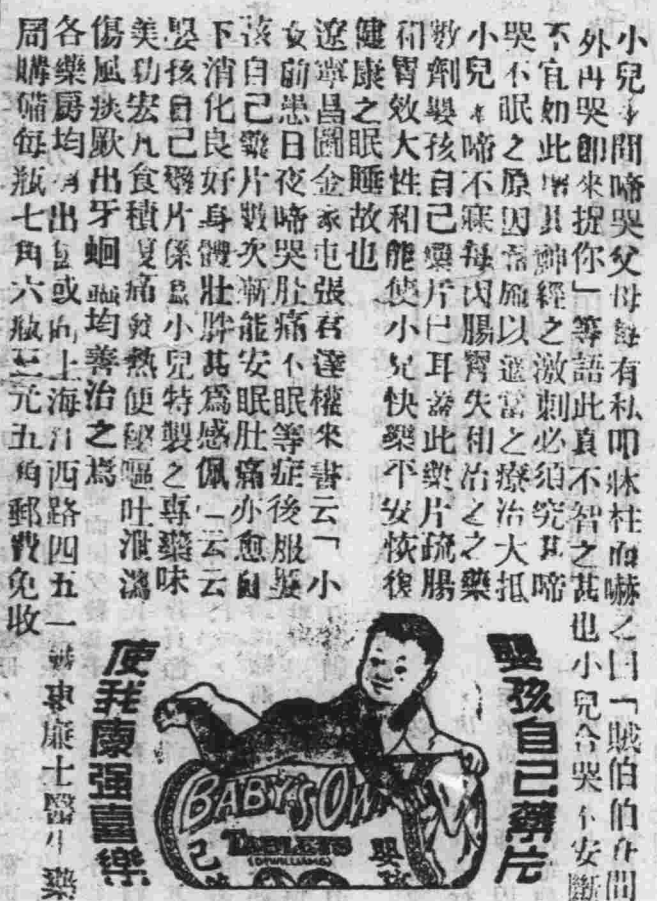 小兒才間啼哭父母每有私叩牀柱而嚇之曰「賊伯伯在間
外再哭卽來捉你」等語此真不智之甚也小兒含哭不安斷
不宜如此增其神經之激刺必須究其啼
哭不眠之原因而施以適當之療治大抵
小兒啼不寐每因腸胃失和治之之藥
數劑嬰孩自己藥片已耳蓋此藥片疏腸
和胃效大性和能使小兒快樂平安恢復
健康之眠睡故也
遼寧昌圖金家屯張君達權來書云「小
女前患日夜啼哭肚痛不眠等症後服嬰
孩自己藥片數次漸能安眠肚痛亦愈自
下消化良好身體壯胖甚爲感佩」云云
嬰孩自己藥片係爲小兒特製之專藥味
美功宏凡食積腹痛發熱便秘嘔吐泄瀉
傷風痰厥出牙蛔蟲均善治之焉
各藥房均有出售或向上海江西路四五一
局購備每瓶七角六瓶三元五角郵費免收
韋廉士醫生藥
嬰孩自己藥片
使我康强喜樂
BABY'S OWN
TABLETS
(DR WILLIAMS)
嬰孩
自己